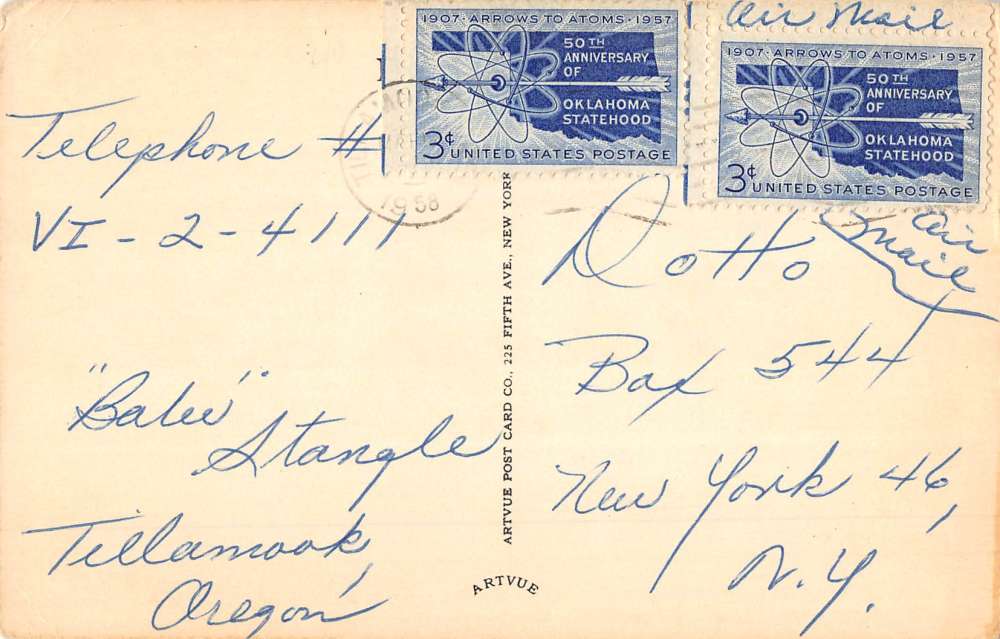 Air Mail
1907·ARROWS TO ATOMS·1957
50TH
ANNIVERSARY
OF
OKLAHOMA
STATEHOOD
3¢ UNITED STATES POSTAGE
1907·ARROWS TO ATOMS·1957
50TH
ANNIVERSARY
OF
OKLAHOMA
STATEHOOD
3¢ UNITED STATES POSTAGE
1958
Air
Mail
Telephone #
VI-2-4111
Stangle
Tillamook,
Oregon
ARTVUE POST CARD CO., 225 FIFTH AVE., NEW YORK
ARTVUE
Dotto
Box 544
New York 46,
N.Y.